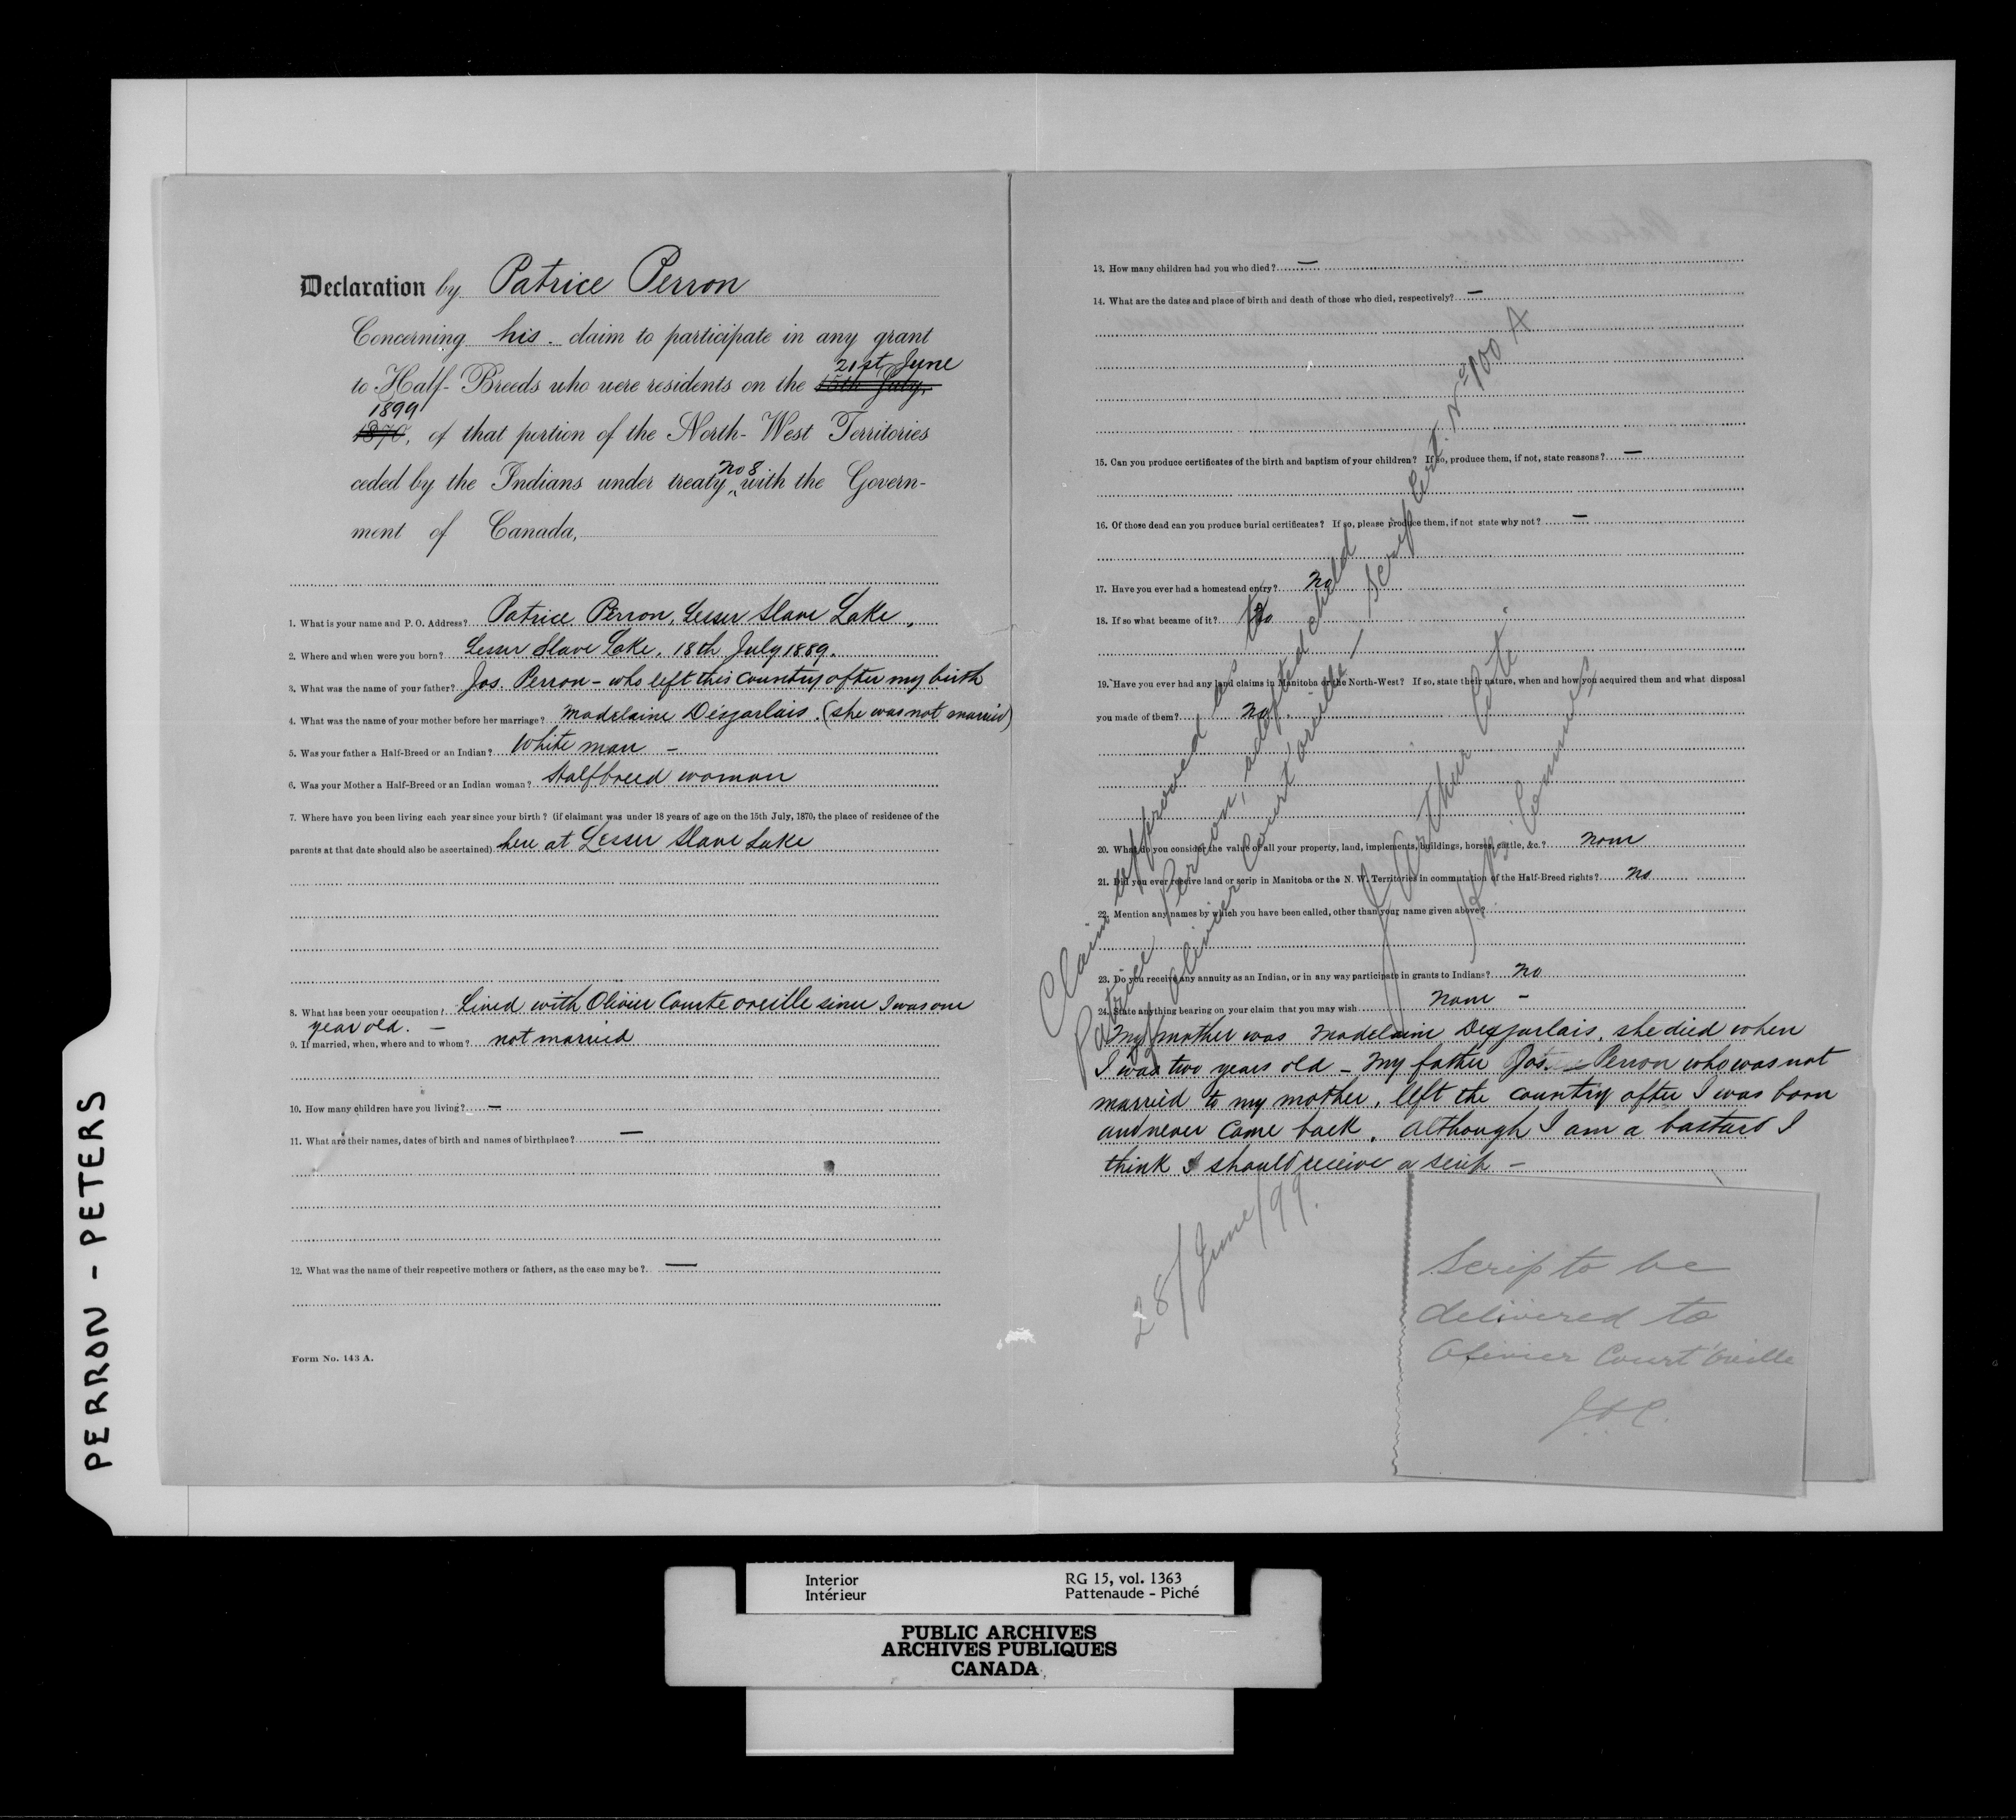 Declaration by Patrice Perron
Concerning his. claim to participate in any grant
21st June
to Half-Breeds who were residents on the 15th July,
1899
1870, of that portion of the North-West Territories
No 8
ceded by the Indians under treaty ^ with the Govern-
ment of Canada,
1. What is your name and P. O. Address? Patrice Perron, Lesser Slave Lake,
2. Where and when were you born? Lesser Slave Lake. 18th July 1889.
3. What was the name of your father? Jos. Perron - who left this country after my birth
4. What was the name of your mother before her marriage? Madelaine Desjarlais. (she was not married)
5. Was your father a Half-Breed or an Indian? White man -
6. Was your Mother a Half-Breed or an Indian woman? Halfbreed woman
7. Where have you been living each year since your birth? (if claimant was under 18 years of age on the 15th July, 1870, the place of residence of the
parents at that date should also be ascertained) here at Lesser Slave Lake
8. What has been your occupation? Lived with Olivier Courte oreille since I was one
year old. -
9. If married, when, where and to whom? not married
10. How many children have you living? —
11. What are their names, dates of birth and names of birthplace? —
12. What was the name of their respective mothers or fathers, as the case may be? —
Form No. 143 A.
13. How many children had you who died? —
14. What are the dates and place of birth and death of those who died, respectively? —
15. Can you produce certificates of the birth and baptism of your children? If so, produce them, if not, state reasons? —
16. Of those dead can you produce burial certificates? If so, please produce them, if not state why not? —
17. Have you ever had a homestead entry? No
18. If so what became of it? No
19. Have you ever had any land claims in Manitoba or the North-West? If so, state their nature, when and how you acquired them and what disposal
you made of them? No.
20. What do you consider the value of all your property, land, implements, buildings, horses, cattle, &c.? None
21. Did you ever receive land or scrip in Manitoba or the N. W. Territories in commutation of the Half-Breed rights? No
22. Mention any names by which you have been called, other than your name given above?
23. Do you receive any annuity as an Indian, or in any way participate in grants to Indians? No
24. State anything bearing on your claim that you may wish None -
My mother was Madelaine Desjarlais, she died when
I was two years old - My father Jos. Perron who was not
married to my mother, left the country after I was born
and never came back. Although I am a bastard I
think I should receive a scrip -
Claim approved as to
Patrice Perron, adopted child
of Olivier Court'oreille - Scrip Cert. No 900 A
J. Arthur Coté
28/June/99.
Scrip to be
delivered to
Olivier Court'oreille
J.A.C.
PERRON - PETERS
Interior
Intérieur
RG 15, vol. 1363
Pattenaude - Piché
PUBLIC ARCHIVES
ARCHIVES PUBLIQUES
CANADA